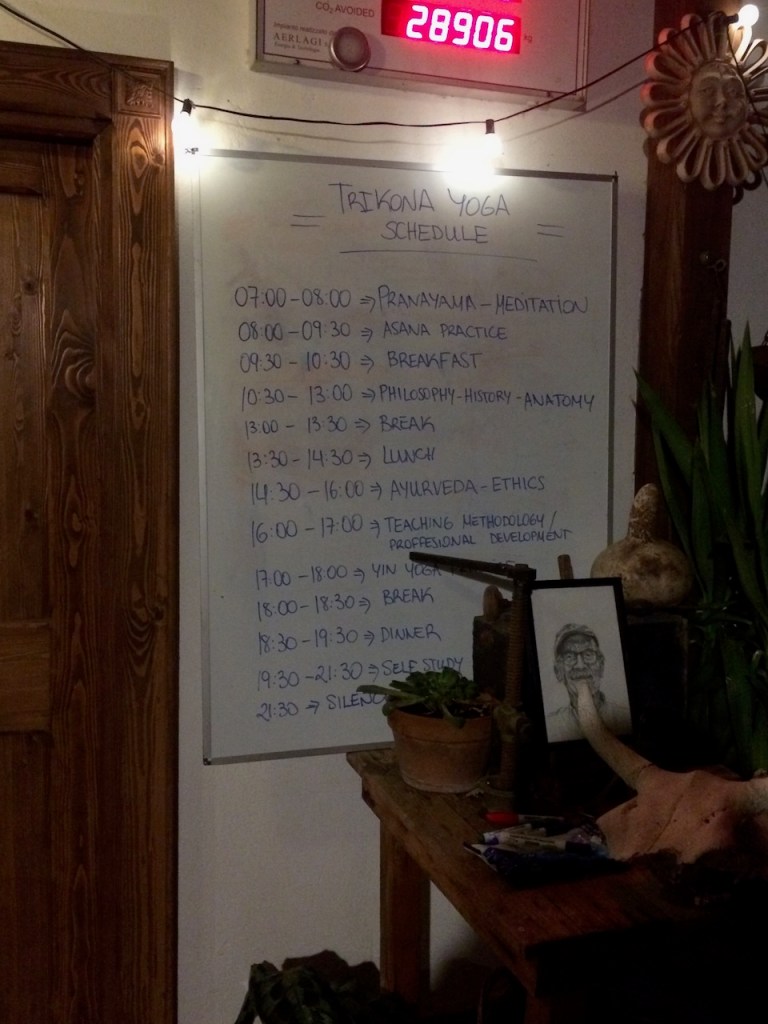 CO₂ AVOIDED
28906 kg
AERLAGI
TRIKONA YOGA
SCHEDULE
07:00 - 08:00 => PRANAYAMA - MEDITATION
08:00 - 09:30 => ASANA PRACTICE
09:30 - 10:30 => BREAKFAST
10:30 - 13:00 => PHILOSOPHY - HISTORY - ANATOMY
13:00 - 13:30 => BREAK
13:30 - 14:30 => LUNCH
14:30 - 16:00 => AYURVEDA - ETHICS
16:00 - 17:00 => TEACHING METHODOLOGY /
PROFFESIONAL DEVELOPMENT
17:00 - 18:00 => YIN YOGA
18:00 - 18:30 => BREAK
18:30 - 19:30 => DINNER
19:30 - 21:30 => SELF STUDY
21:30 => SILENC